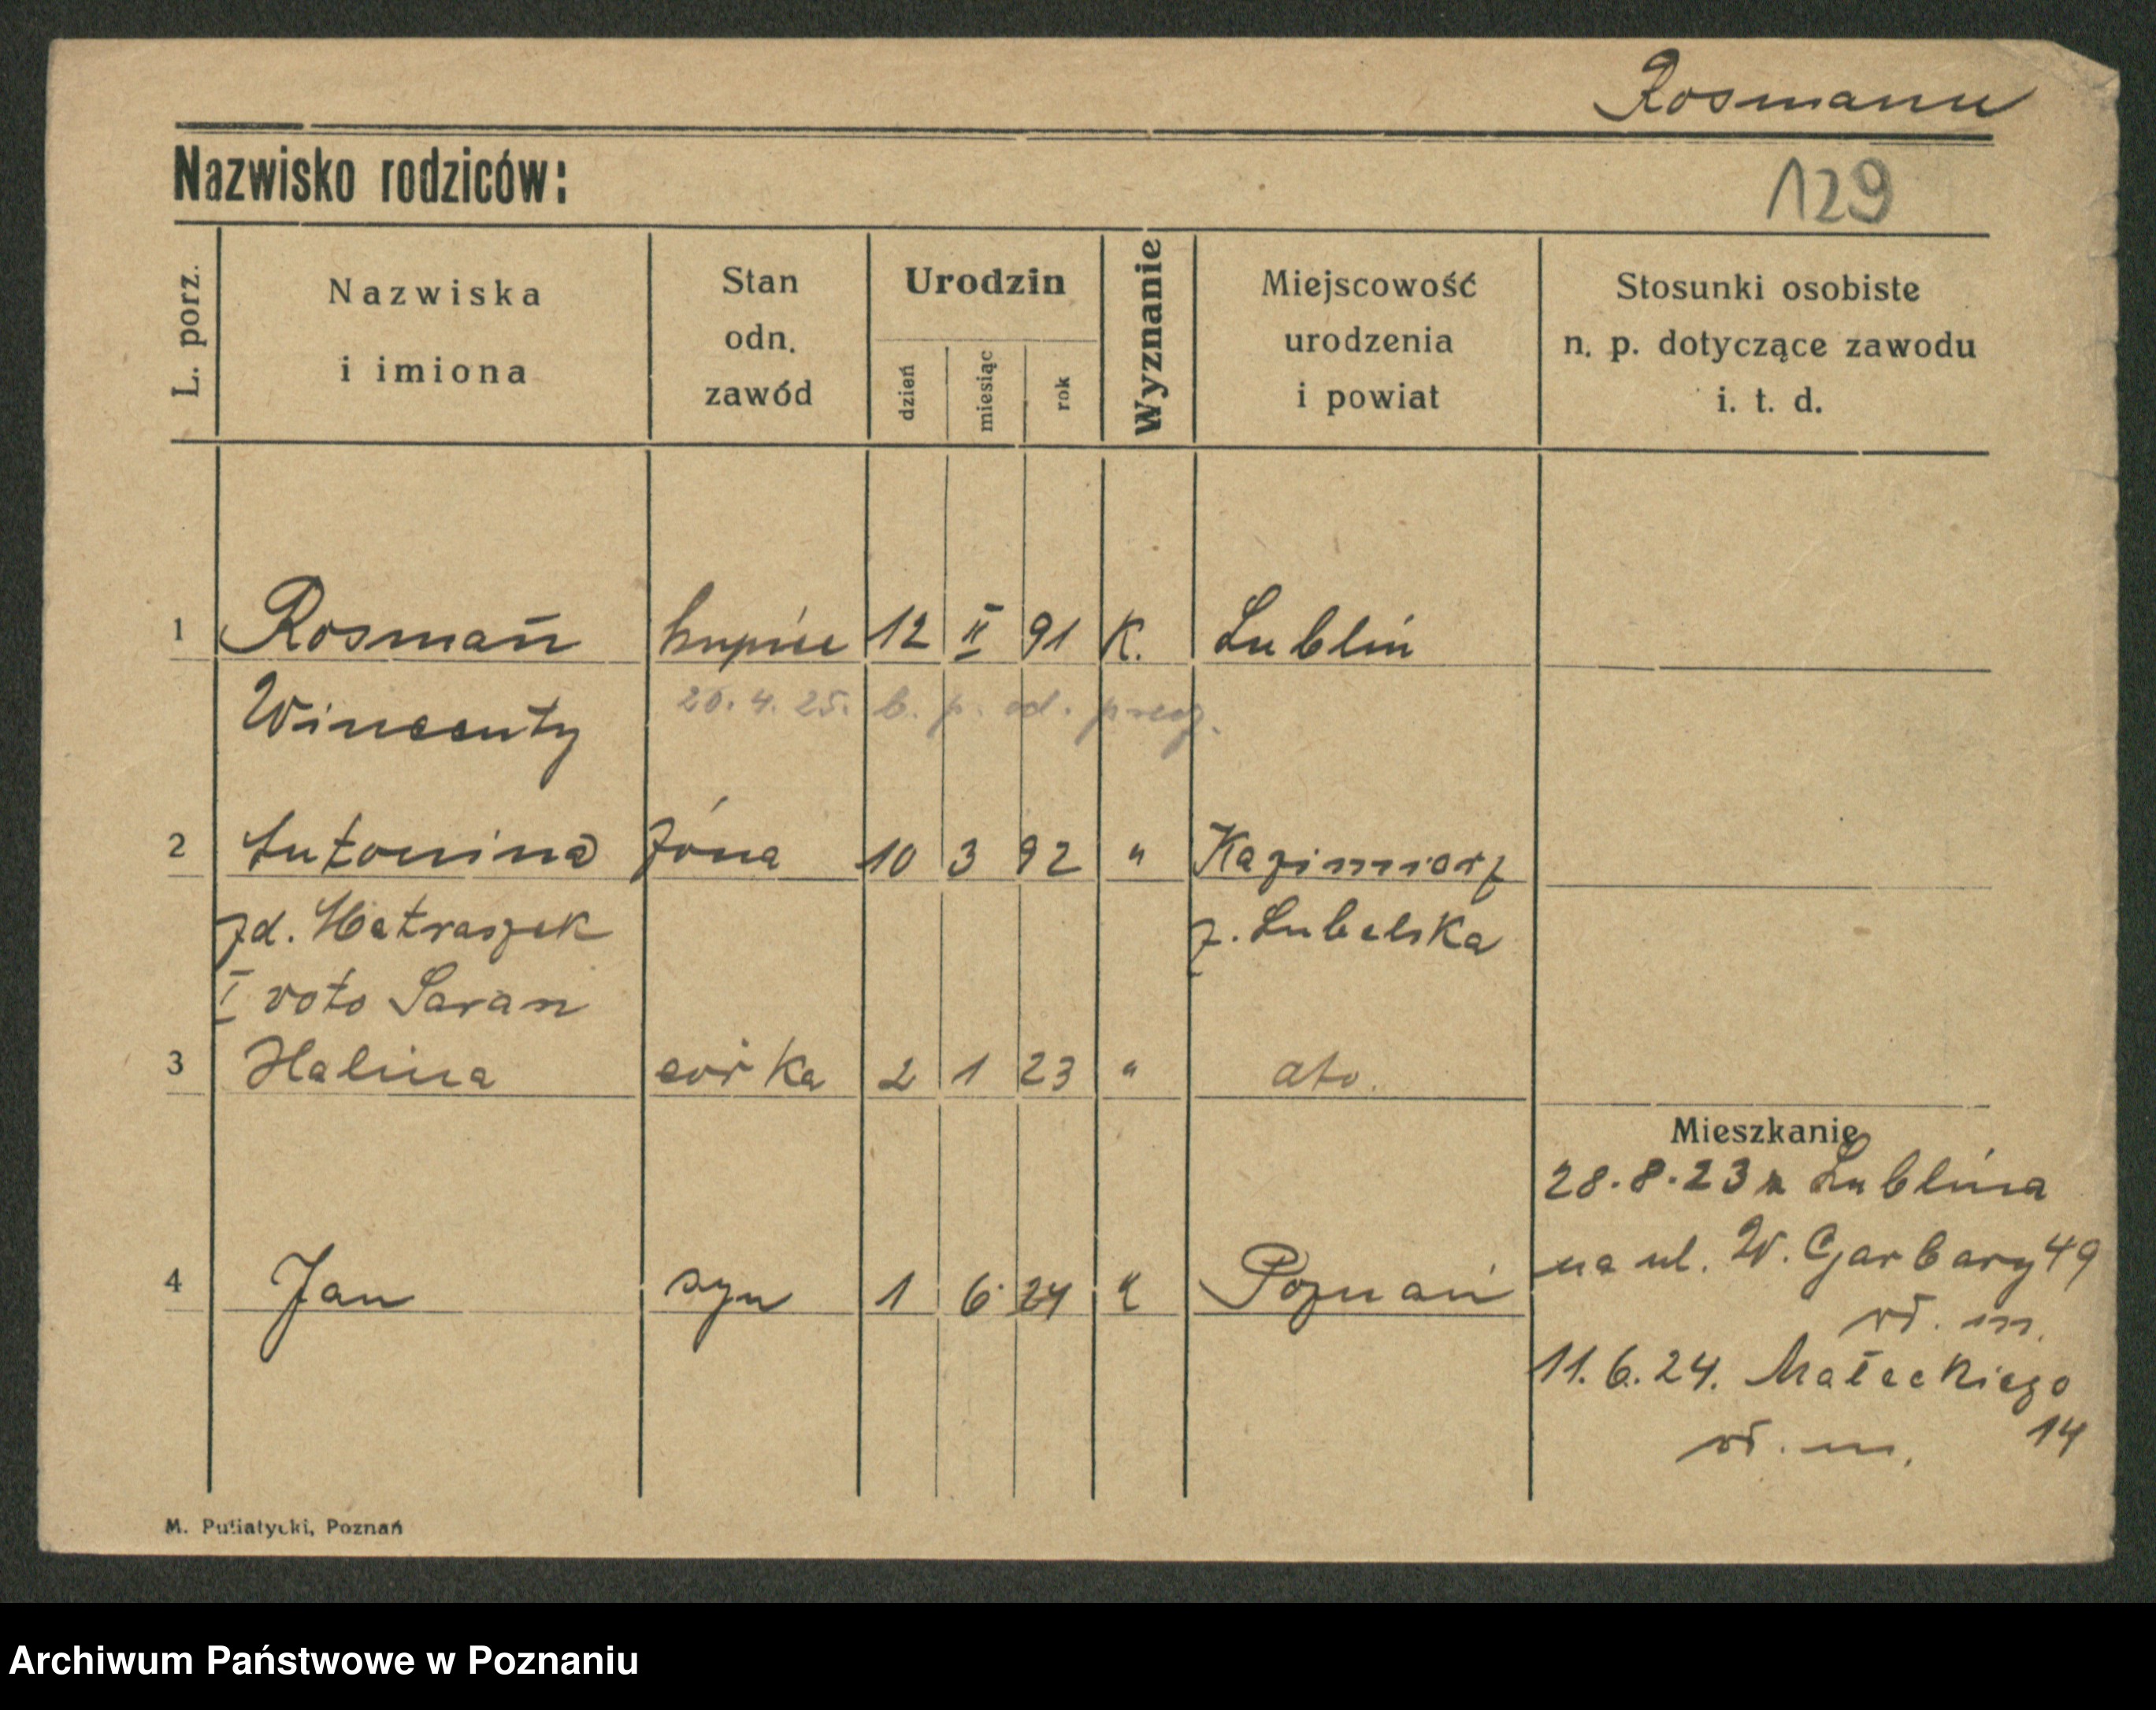 Rosmann
Nazwisko rodziców:
129
L. porz.
Nazwiska
i imiona
Stan
odn.
zawód
Urodzin
dzień
miesiąc
rok
Wyznanie
Miejscowość
urodzenia
i powiat
Stosunki osobiste
n. p. dotyczące zawodu
i. t. d.
1 Rosman̄ kupiec 12 II 91 K. Lublin
Wincenty 20.4.25. b. p. od.
2 Antonina żona 10 3 92 " Kazimierz
zd. Matraszek z. Lubelska
I voto Saran
3 Halina córka 2 1 23 " dto.
Mieszkanie
28.8.23 z Lublina
na ul. W. Garbary 49
4 Jan syn 1 6 24 K Poznań
wł. m.
11.6.24. Małeckiego
14
wł. m.
M. Putiatycki, Poznań
Archiwum Państwowe w Poznaniu